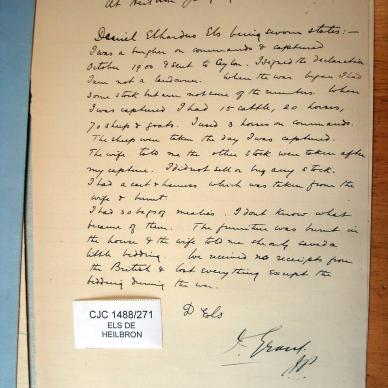 At Heilbron
Daniel Elhardus Els being sworn states:—
I was a burgher on commando & captured
October 1900 & sent to Ceylon. I signed the declaration.
I am not a landowner. When the war began I had
some stock but am not sure of the number. When
I was captured I had 15 cattle, 20 horses,
70 sheep & goats. I used 3 horses on commando.
The sheep were taken the day I was captured.
The wife told me the other stock were taken after
my capture. I did not sell or buy any stock.
I had a cart & harness which was taken from the
wife & burnt.
I had 30 bags of mealies. I dont know what
became of them. The furniture was burnt in
the house & the wife told me she only saved a
little bedding. We received no receipts from
the British & lost everything except the
bedding during the war.
D Els
JP
CJC 1488/271
ELS DE
HEILBRON